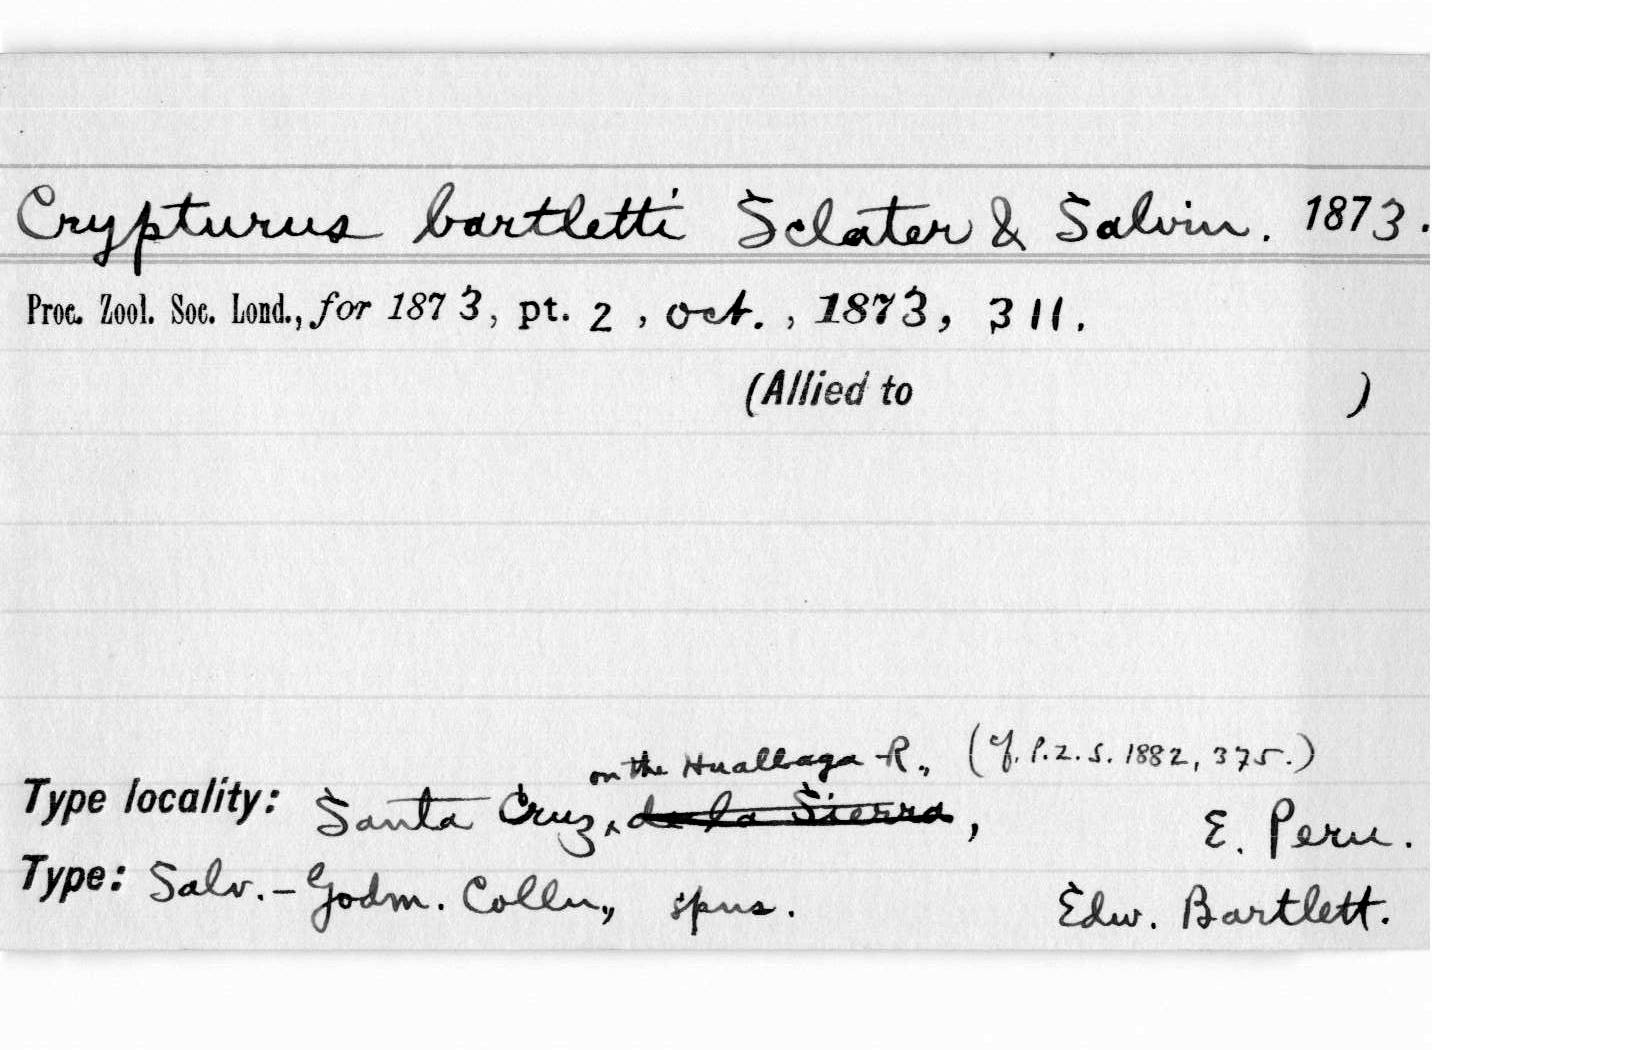 Crypturus bartletti Sclater & Salvin. 1873.
Proc. Zool. Soc. Lond., for 1873, pt. 2, Oct., 1873, 311.
(Allied to )
on the Huallaga R., (cf. P.Z.S. 1882, 375.)
Type locality: Santa Cruz, ‸ de la Sierra, E. Peru.
Type: Salv.-Godm. Colln., spns. Edw. Bartlett.